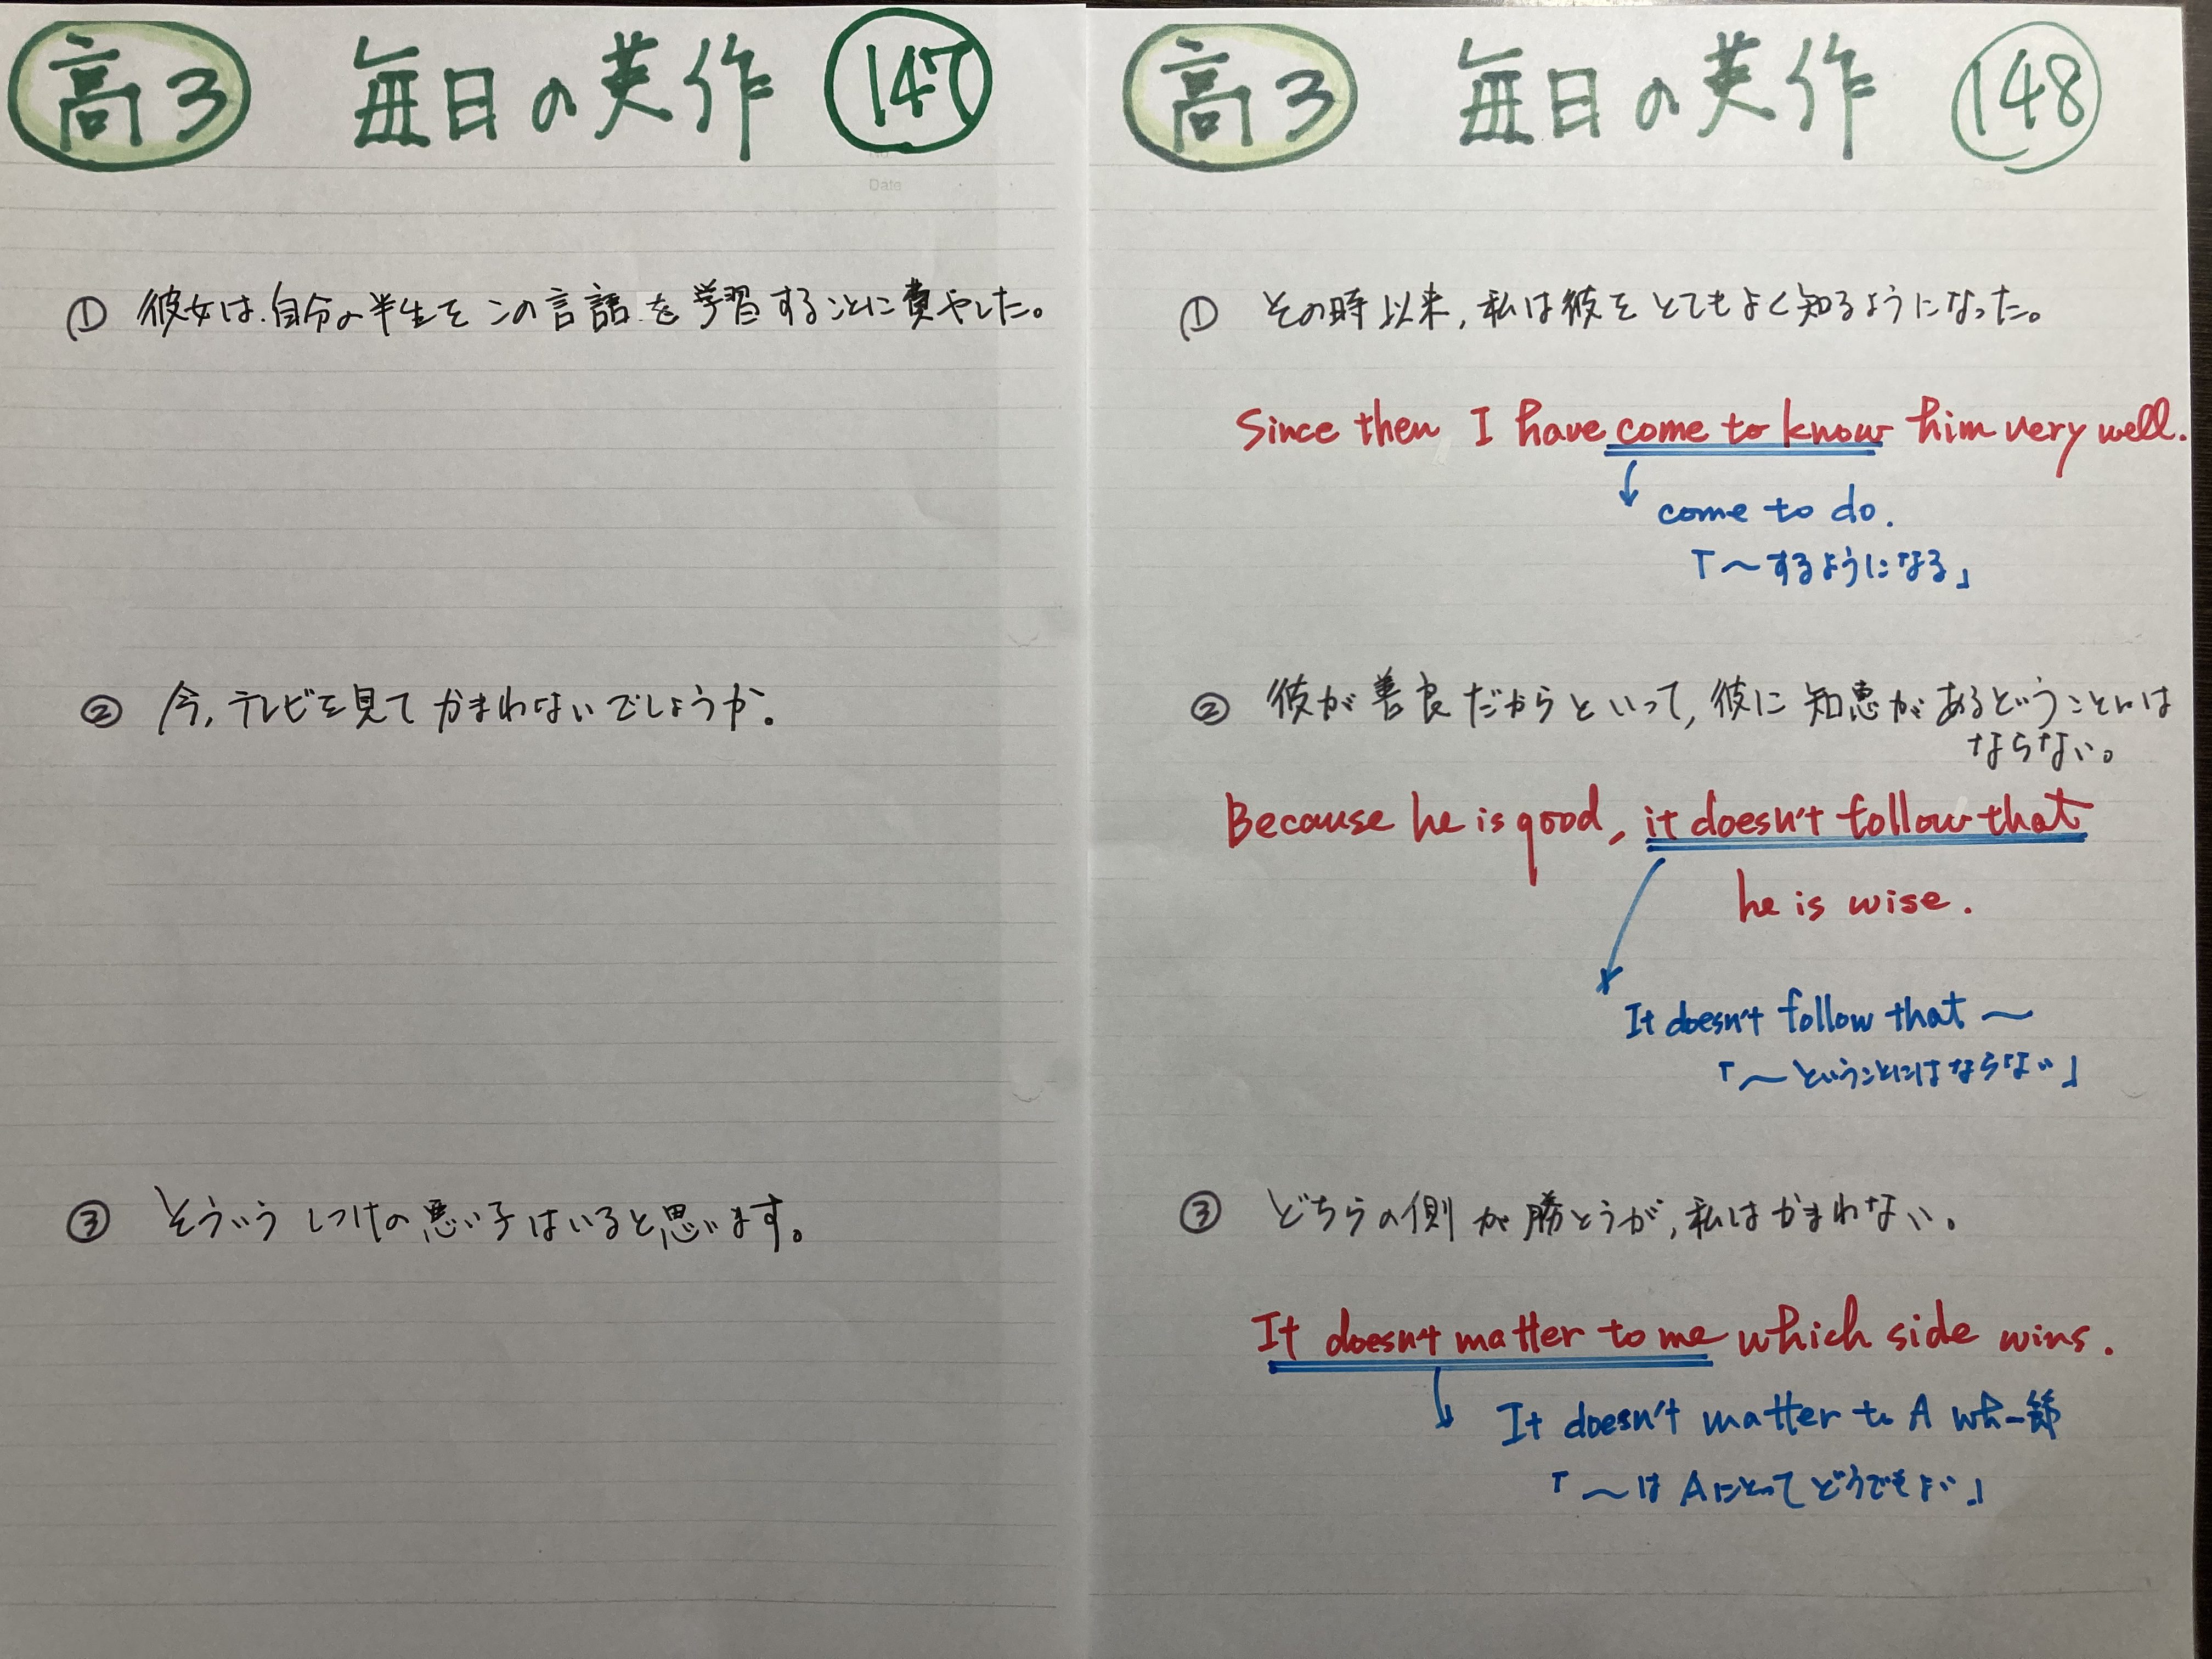 高3 毎日の英作 147
Date
① 彼女は、自分の半生をこの言語を学習することに費やした。
② 今,テレビを見てかまわないでしょうか。
③ そういうしつけの悪い子はいると思います。
高3 毎日の英作 148
① その時以来,私は彼をとてもよく知るようになった。
Since then I have come to know him very well.
come to do.
「~するようになる」
② 彼が善良だからといって,彼に知恵があるということには
ならない。
Because he is good, it doesn't follow that
he is wise.
It doesn't follow that ~
「~ということにはならない」
③ どちらの側が勝とうが,私はかまわない。
It doesn't matter to me which side wins.
It doesn't matter to A wh-節
「~はAにとってどうでもよい」